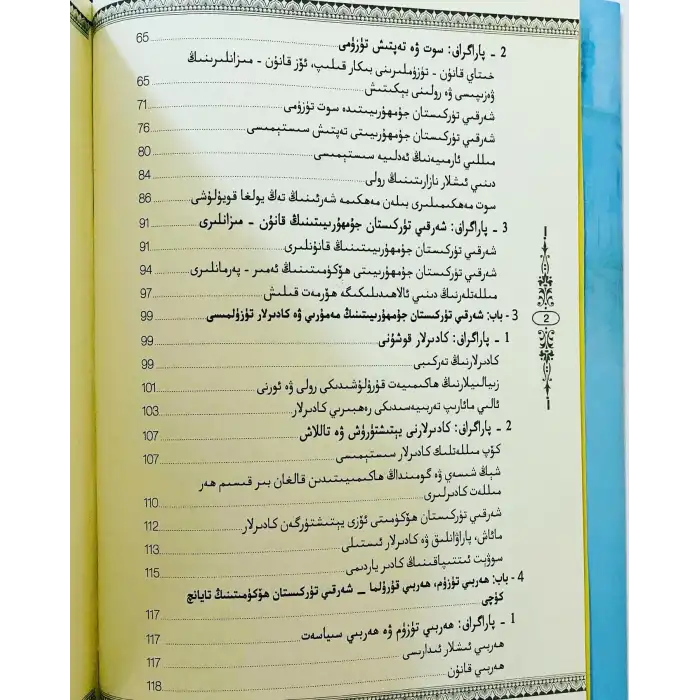 2 - پاراگراف: سوت ۋە تەپتىش تۈزۈمى 65
خىتاي قانۇن - تۈزۈملىرىنى بىكار قىلىپ، ئۆز قانۇن - مىزانلىرىنىڭ
ۋەزىپىسى ۋە رولىنى بېكىتىش 65
شەرقىي تۈركىستان جۇمھۇرىيىتىدە سوت تۈزۈمى 71
شەرقىي تۈركىستان جۇمھۇرىيىتى تەپتىش سىستېمىسى 76
مىللىي ئارمىيەنىڭ ئەدلىيە سىستېمىسى 80
دىنىي ئىشلار نازارىتىنىڭ رولى 84
سوت مەھكىمىلىرى بىلەن مەھكىمە شەرئىنىڭ تەڭ يولغا قويۇلۇشى 86
3 - پاراگراف: شەرقىي تۈركىستان جۇمھۇرىيىتىنىڭ قانۇن - مىزانلىرى 91
شەرقىي تۈركىستان جۇمھۇرىيىتىنىڭ قانۇنلىرى 91
شەرقىي تۈركىستان جۇمھۇرىيىتى ھۆكۈمىتىنىڭ ئەمىر - پەرمانلىرى 94
مىللەتلەرنىڭ دىنىي ئالاھىدىلىكىگە ھۆرمەت قىلىش 97
3 - باب: شەرقىي تۈركىستان جۇمھۇرىيىتىنىڭ مەمۇرىي ۋە كادىرلار تۈزۈلمىسى 99
1 - پاراگراف: كادىرلار قوشۇنى 99
كادىرلارنىڭ تەركىبى 99
زىيالىيلارنىڭ ھاكىمىيەت قۇرۇلۇشىدىكى رولى ۋە ئورنى 101
ئالىي مائارىپ تەربىيەسىدىكى رەھبىرىي كادىرلار 103
2 - پاراگراف: كادىرلارنى يېتىشتۈرۈش ۋە تاللاش 107
كۆپ مىللەتلىك كادىرلار سىستېمىسى 107
شېڭ شىسەي ۋە گومىنداڭ ھاكىمىيىتىدىن قالغان بىر قىسىم ھەر
مىللەت كادىرلىرى 110
شەرقىي تۈركىستان ھۆكۈمىتى ئۆزى يېتىشتۈرگەن كادىرلار 112
مائاش، پاراۋانلىق ۋە كادىرلار ئىستىلى 113
سوۋېت ئىتتىپاقىنىڭ كادىر ياردىمى 115
4 - باب: ھەربىي تۈزۈم، ھەربىي قۇرۇلما _ شەرقىي تۈركىستان ھۆكۈمىتىنىڭ تايانچ
كۈچى 117
1 - پاراگراف: ھەربىي تۈزۈم ۋە ھەربىي سىياسەت 117
ھەربىي ئىشلار ئىدارىسى 117
ھەربىي قانۇن 118
2